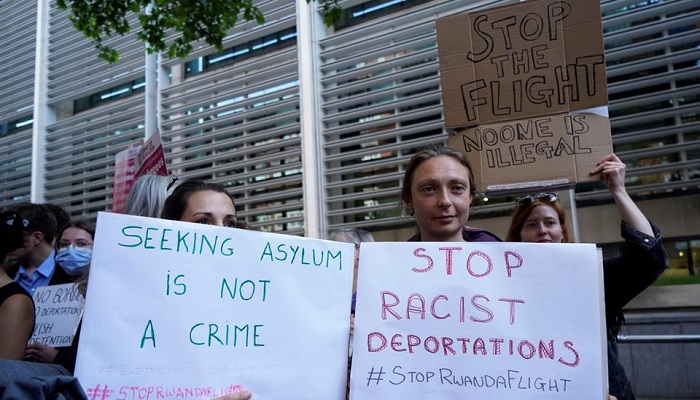 STOP
THE
FLIGHT
NOONE IS
ILLEGAL
SEEKING ASYLUM
IS NOT
A CRIME
#STOPRWANDAFLIGHT
STOP
RACIST
DEPORTATIONS
#STOPRWANDAFLIGHT
NO BORDERS
NO DEPORTATIONS
DETENTION